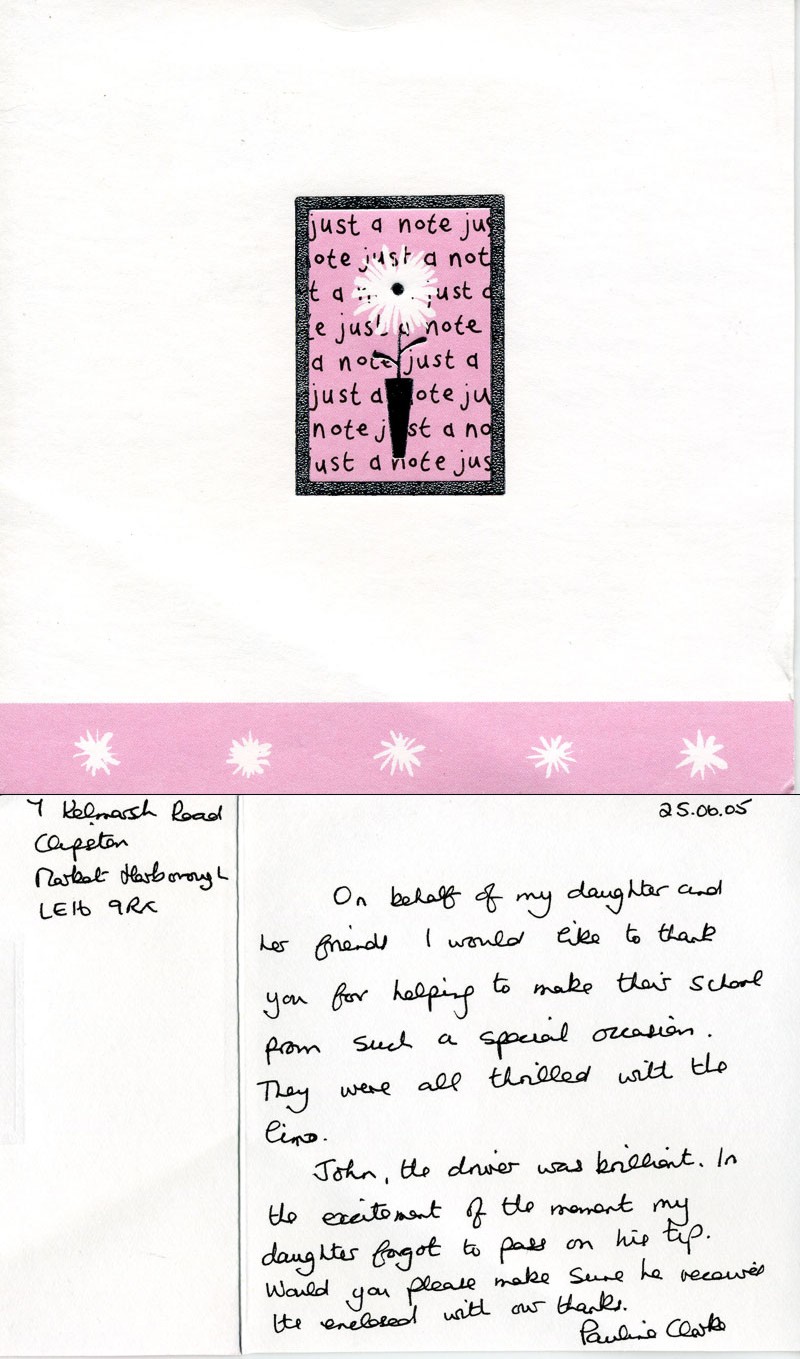 just a note jus
ote just a not
t a just a
e just a note
a note just a
just a ote ju
note just a no
just a note jus
7 Kelmarsh Road
Clipston
Market Harborough
LE16 9RX
25.06.05
On behalf of my daughter and
her friends I would like to thank
you for helping to make their school
prom such a special occasion.
They were all thrilled with the
limo.
John, the driver was brilliant. In
the excitement of the moment my
daughter forgot to pass on his tip.
Would you please make sure he receives
the enclosed with our thanks.
Pauline Clarke